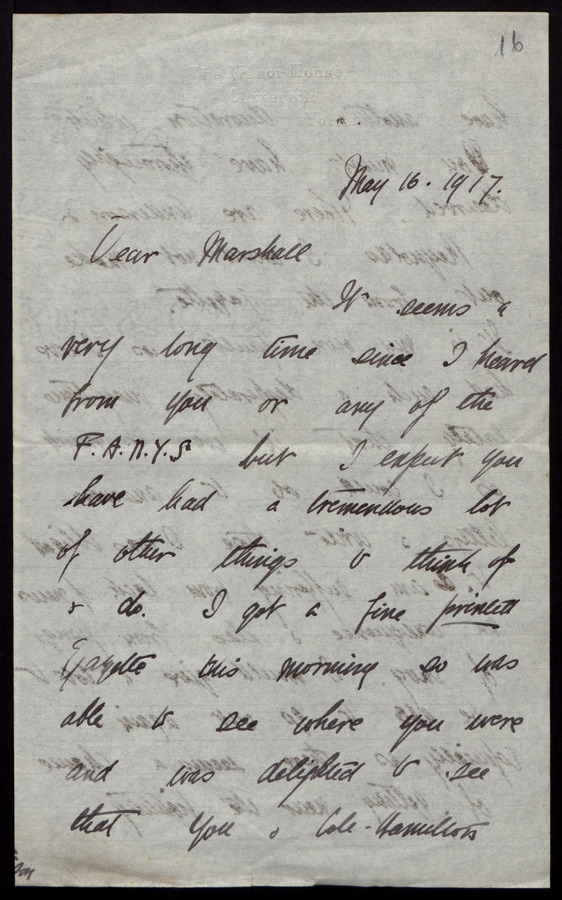 16
The Manor House,
May 16. 1917.
Dear Marshall
It seems a
very long time since I heard
from you or any of the
F.A.N.Y.S but I expect you
have had a tremendous lot
of other things to think of
& do. I got a fine printed
Gazette this morning so was
able to see where you were
and was delighted to see
that you & Cole-Hamiltons